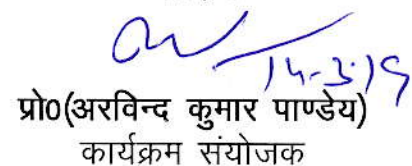 14-3-19
प्रो0(अरविन्द कुमार पाण्डेय)
कार्यक्रम संयोजक